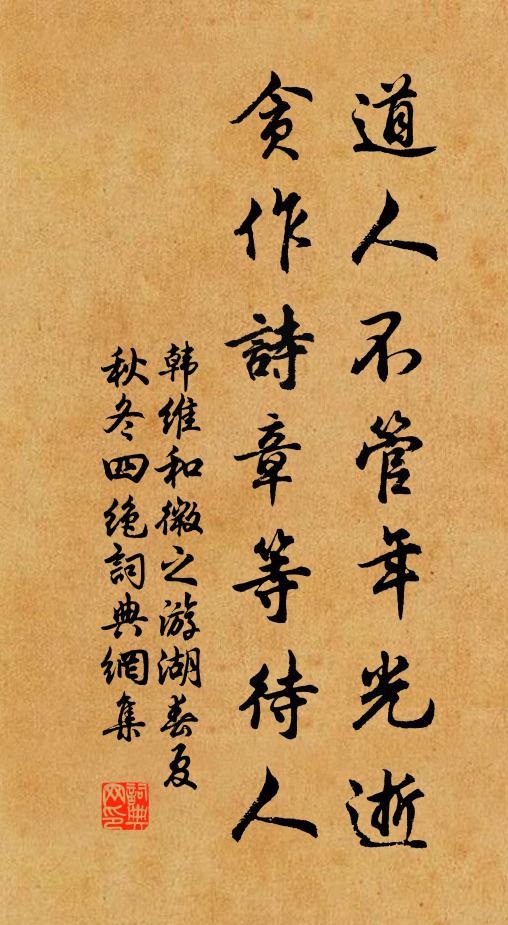 道人不管年光逝
貪作詩章等待人
韩维和微之游湖春夏
秋冬四绝詞典網集
詞典网印